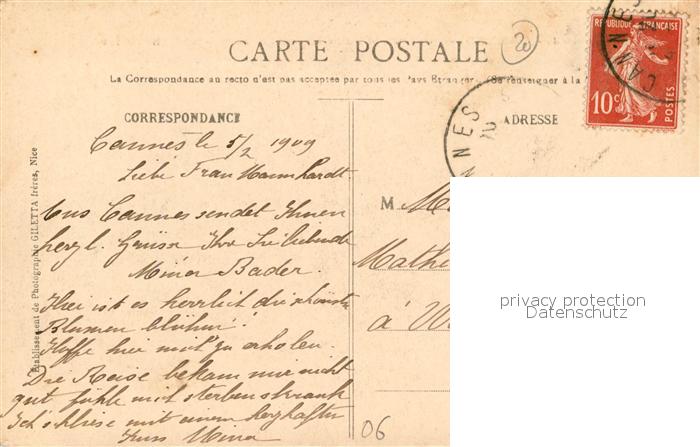 CARTE POSTALE
20
La Correspondance au recto n'est pas acceptée par tous les Pays Étrangers (Se renseigner à la
REPUBLIQUE FRANÇAISE
10c
POSTES
CANNES
CORRESPONDANCE
ADRESSE
Cannes le 5/2 1909
Liebe Frau Mannhardt
Aus Cannes sendet Ihnen
herzl. Grüsse Ihre Sie liebende
Mina Bader.
Hier ist es herrlich die schönste
Blumen blühn!
Hoffe hier mich zu erholen.
Die Reise bekam mir nicht
gut fühle mich sterbenskrank
Ich schliese mit einem herzhaften
Kuss Mina
M
Mathi
à
privacy protection
Datenschutz
06
Etablissement de Photographie GILETTA frères, Nice